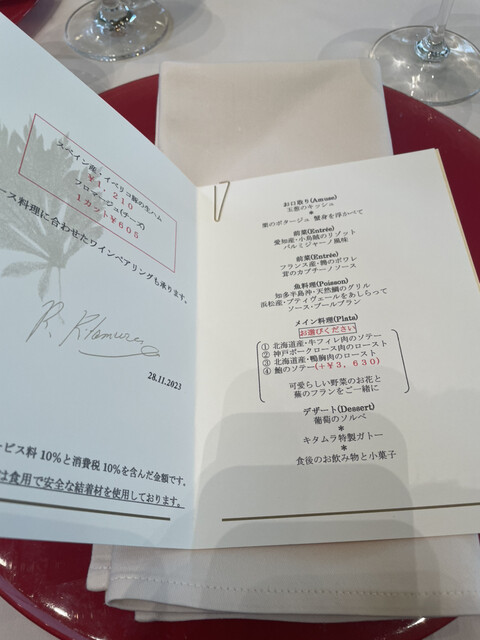 スペイン産・イベリコ豚の生ハム
¥1,210
フロマージュ(チーズ)
1カット¥605
ース料理に合わせたワインペアリングも承ります。
28.11.2023
ービス料 10%と消費税 10%を含んだ金額です。
は食用で安全な結着材を使用しております。
お口取り(Amuse)
玉葱のキッシュ
*
栗のポタージュ 蟹身を浮かべて
前菜(Entrée)
愛知産・小烏賊のリゾット
パルミジャーノ風味
前菜(Entrée)
フランス産・鶉のポワレ
茸のカプチーノソース
魚料理(Poisson)
知多半島沖・天然鯛のグリル
浜松産・プティヴェールをあしらって
ソース・ブールブラン
メイン料理(Plats)
お選びください
① 北海道産・牛フィレ肉のソテー
② 神戸ポークロース肉のロースト
③ 北海道産・鴨胸肉のロースト
④ 鮑のソテー(+¥3,630)
可愛らしい野菜のお花と
蕪のフランをご一緒に
デザート(Dessert)
葡萄のソルベ
*
キタムラ特製ガトー
*
食後のお飲み物と小菓子